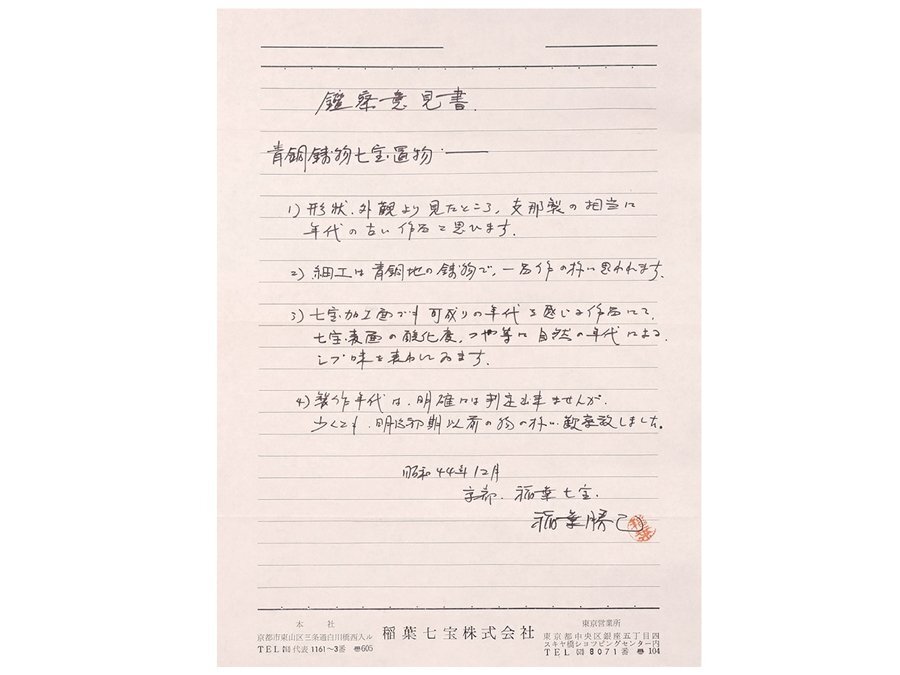 鑑察意見書.
青銅鋳物七宝置物.——
1) 形状、外観より見たところ、支那製の相当に
年代の古い作品と思ひます.
2) 細工は青銅地の鋳物で、一名作の様に思われます.
3) 七宝加工面でも可成りの年代を感じる作品にて、
七宝表面の酸化度、つや等に自然の年代による
シブ味を表わしゐます.
4) 製作年代は、明確には判定出来ませんが、
少くとも、明治初期以前の物の様に歓察致しました。
昭和44年12月
京都. 稲葉七宝.
稲葉勝己
本社
京都市東山区三条通白川橋西入ル
TEL 代表 1161〜3番 〠605
稲葉七宝株式会社
東京営業所
東京都中央区銀座五丁目四
スキヤ橋ショッピングセンター内
TEL 8071番 〠104